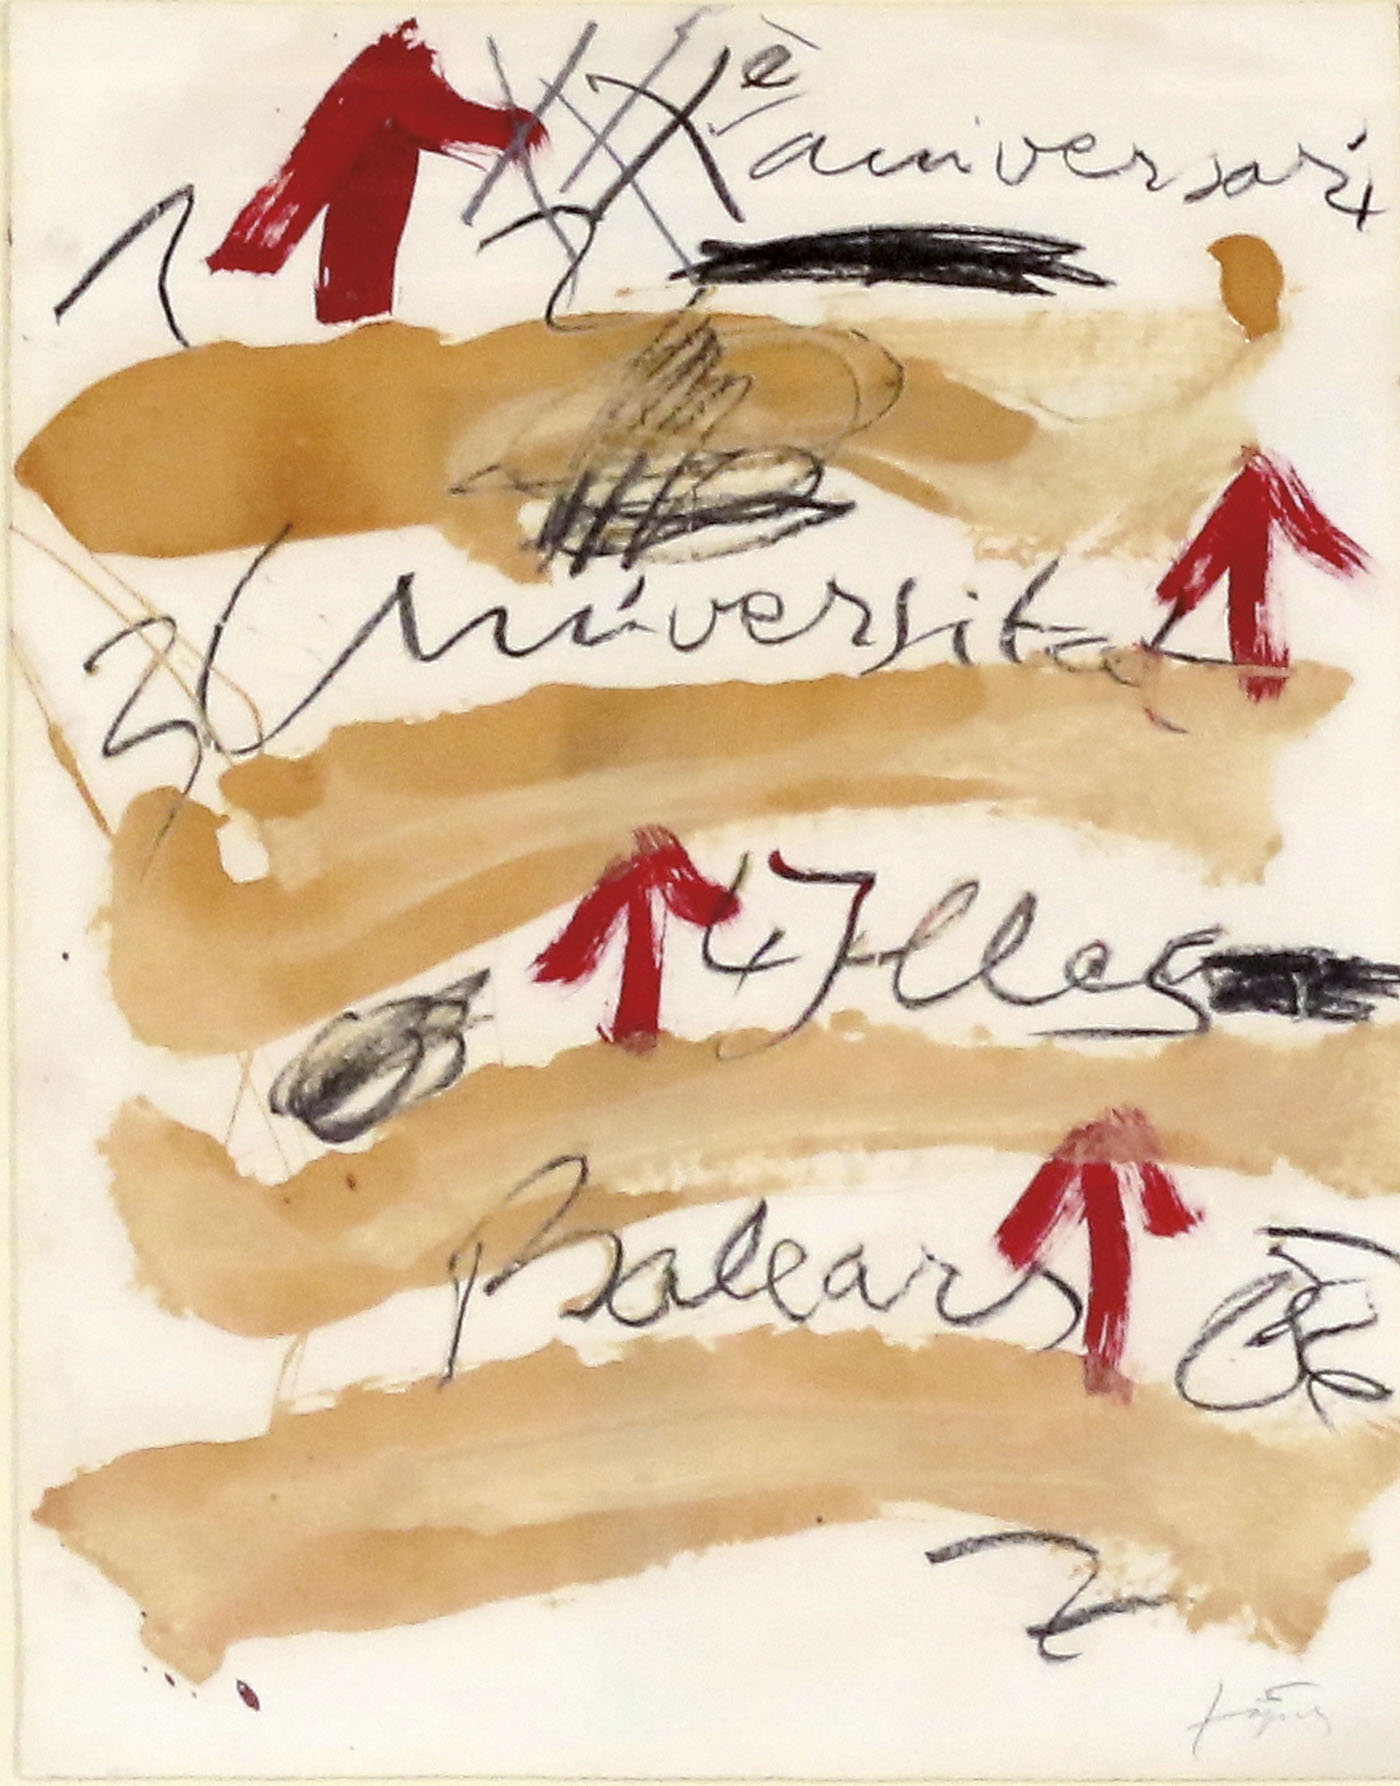 XXXè aniversari
1
2
3 Universitat
4 Illes
Balears
2
Tàpies